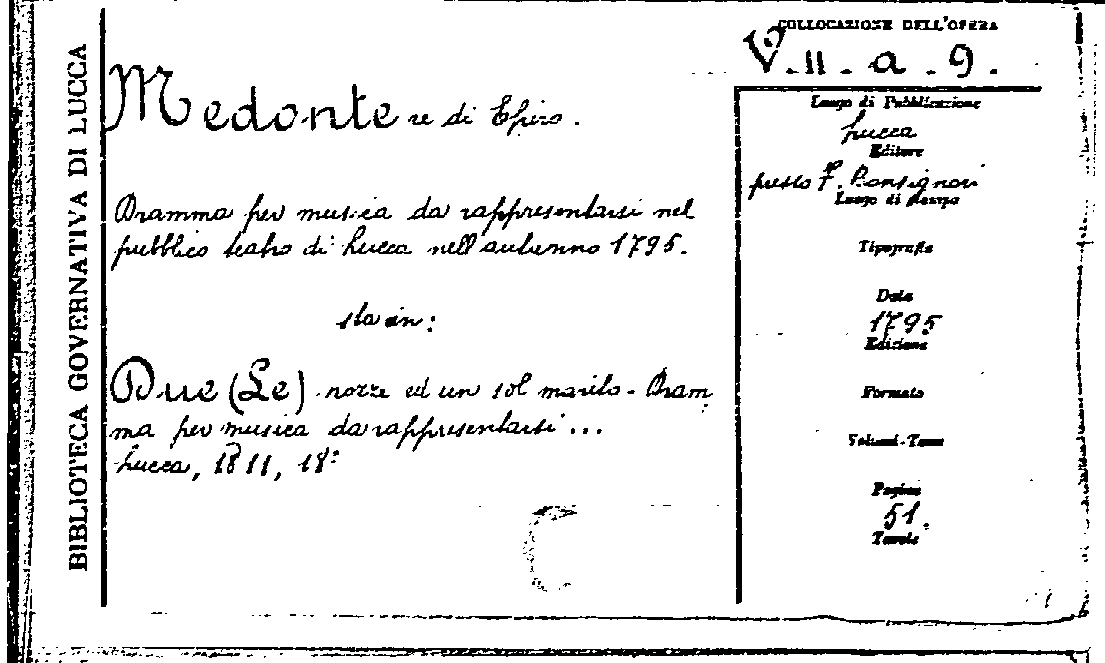 BIBLIOTECA GOVERNATIVA DI LUCCA
Medonte re di Epiro.
Dramma per musica da rappresentarsi nel
pubblico teatro di Lucca nell'autunno 1795.
sta in:
Due (Le) nozze ed un sol marito - Dram
ma per musica da rappresentarsi ...
Lucca, 1811, 18°
COLLOCAZIONE DELL'OPERA
V. II - a. 9.
Luogo di Pubblicazione
Lucca
Editore
presso F. Bonsignori
Luogo di stampa
Tipografia
Data
1795
Edizione
Formato
Volumi-Tomo
Pagine
51.
Tavole